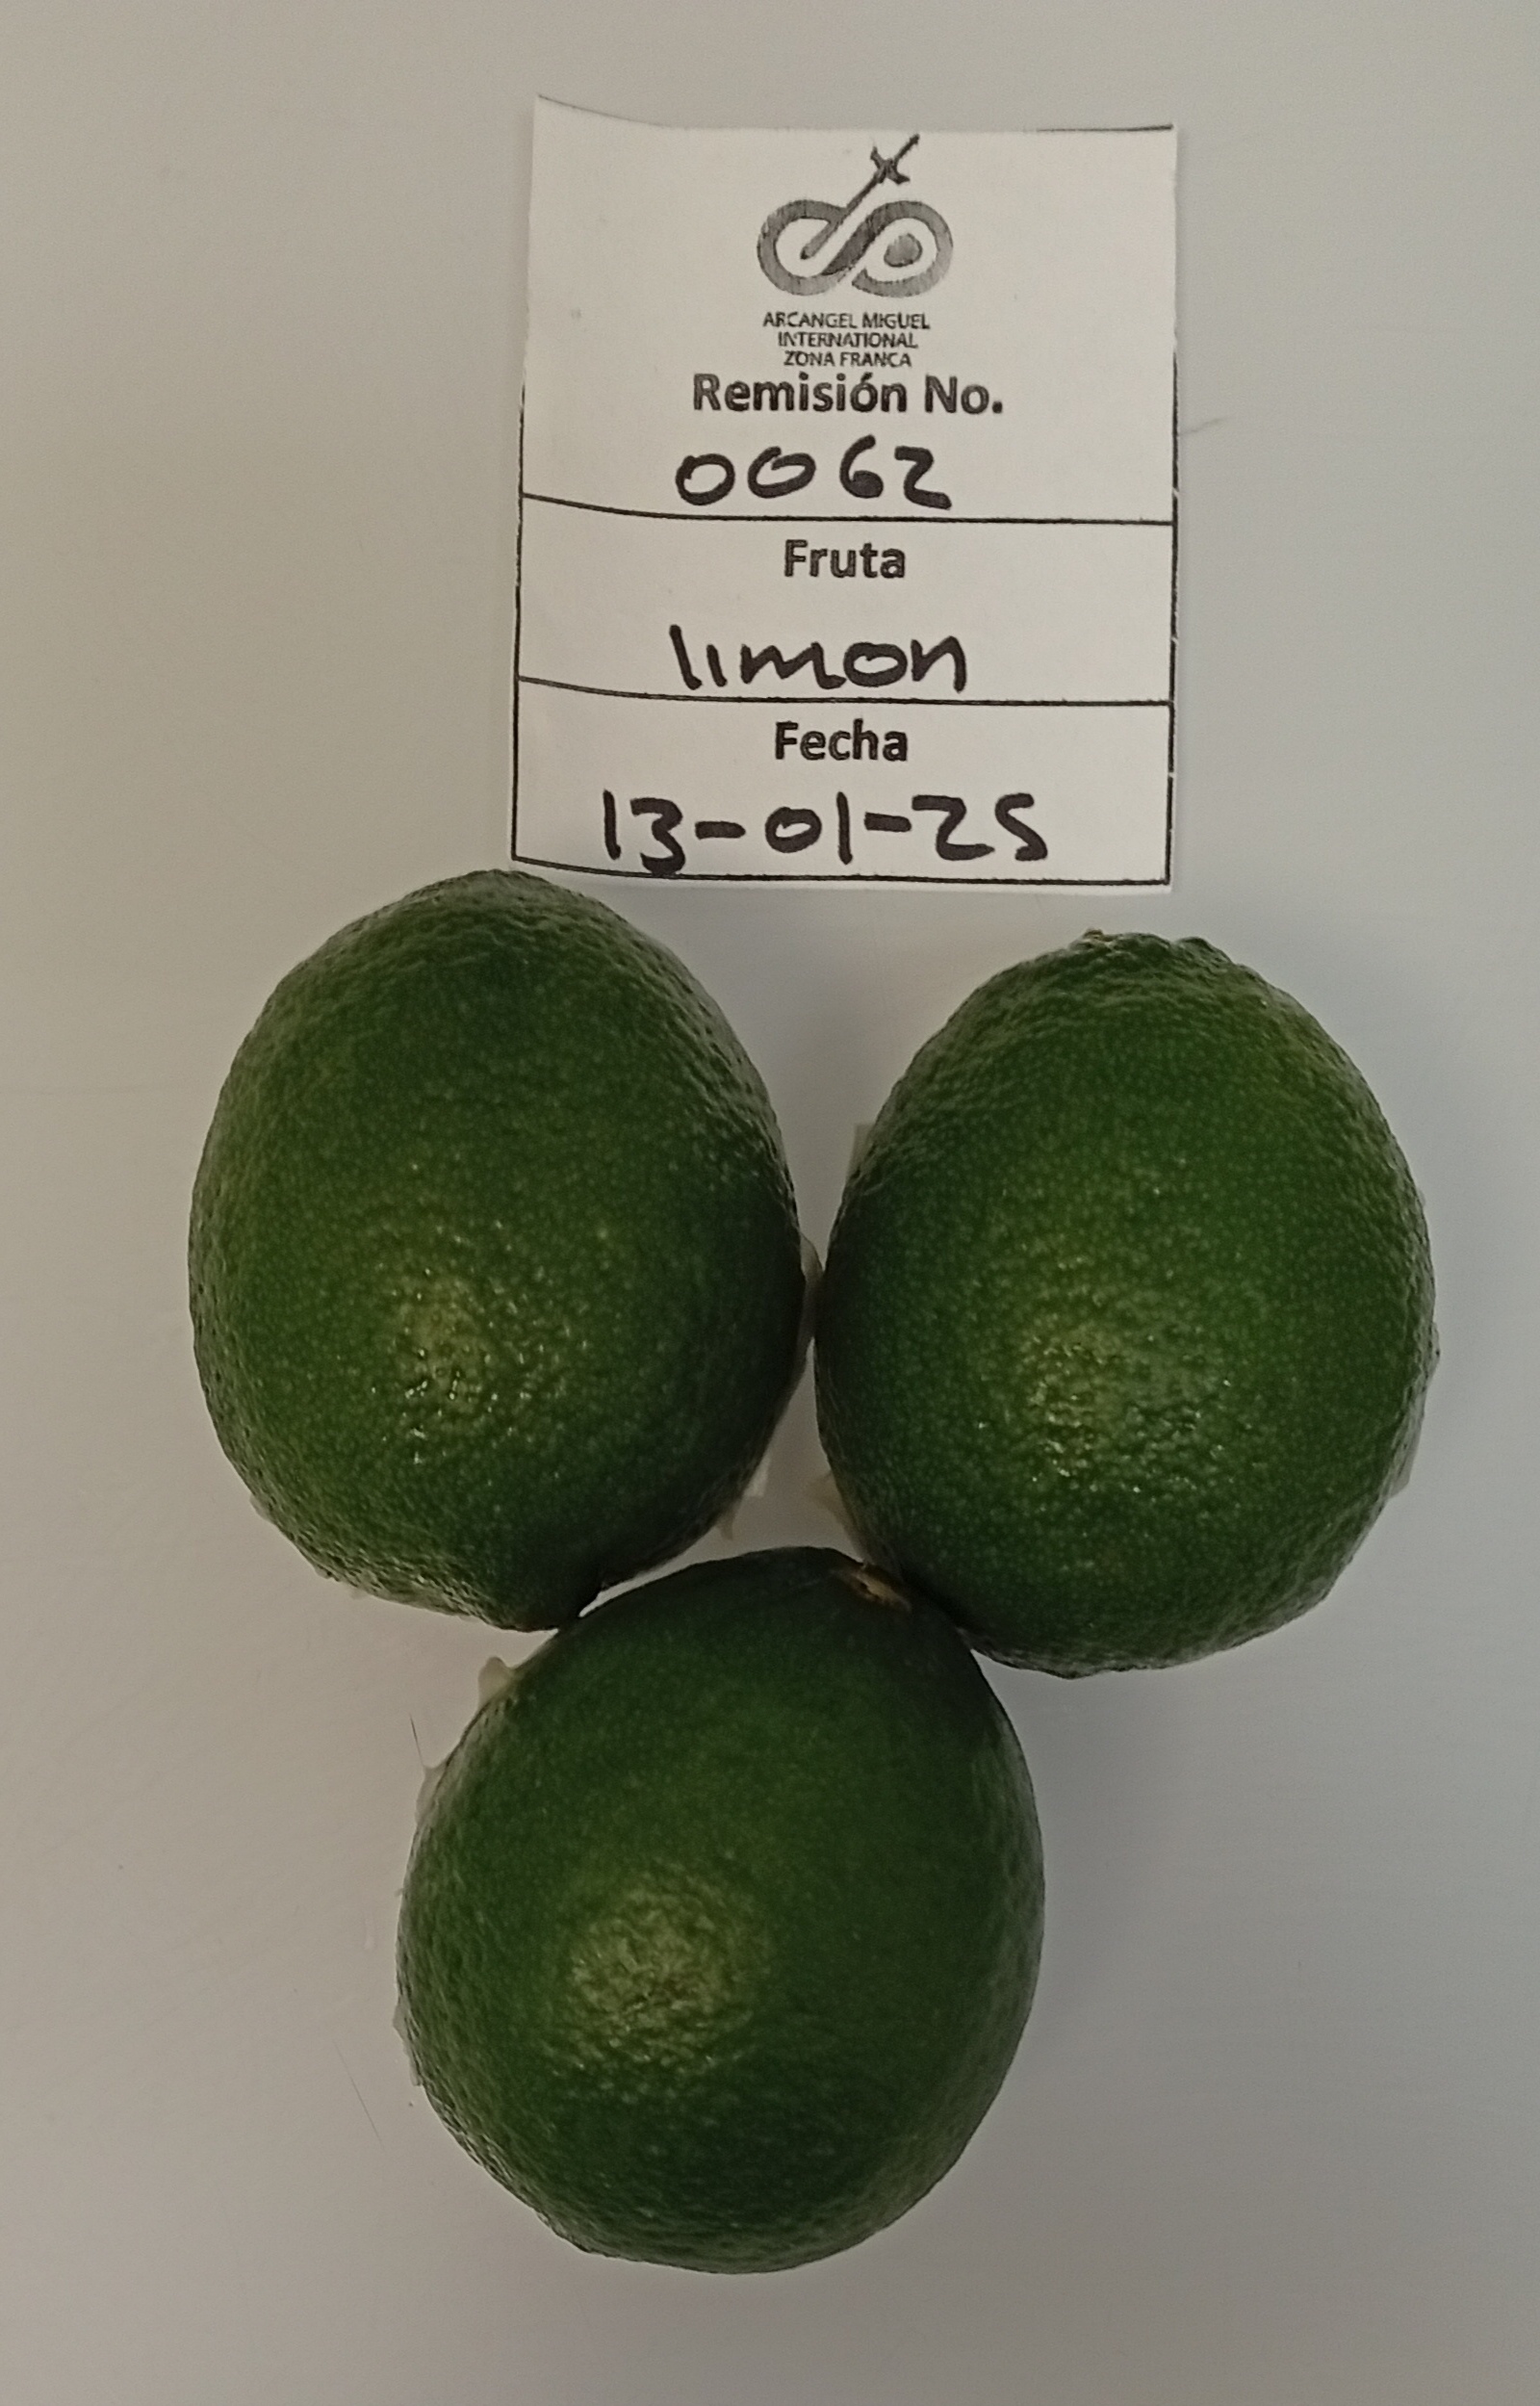 ARCANGEL MIGUEL
INTERNATIONAL
ZONA FRANCA
Remisión No.
0062
Fruta
limon
Fecha
13-01-25